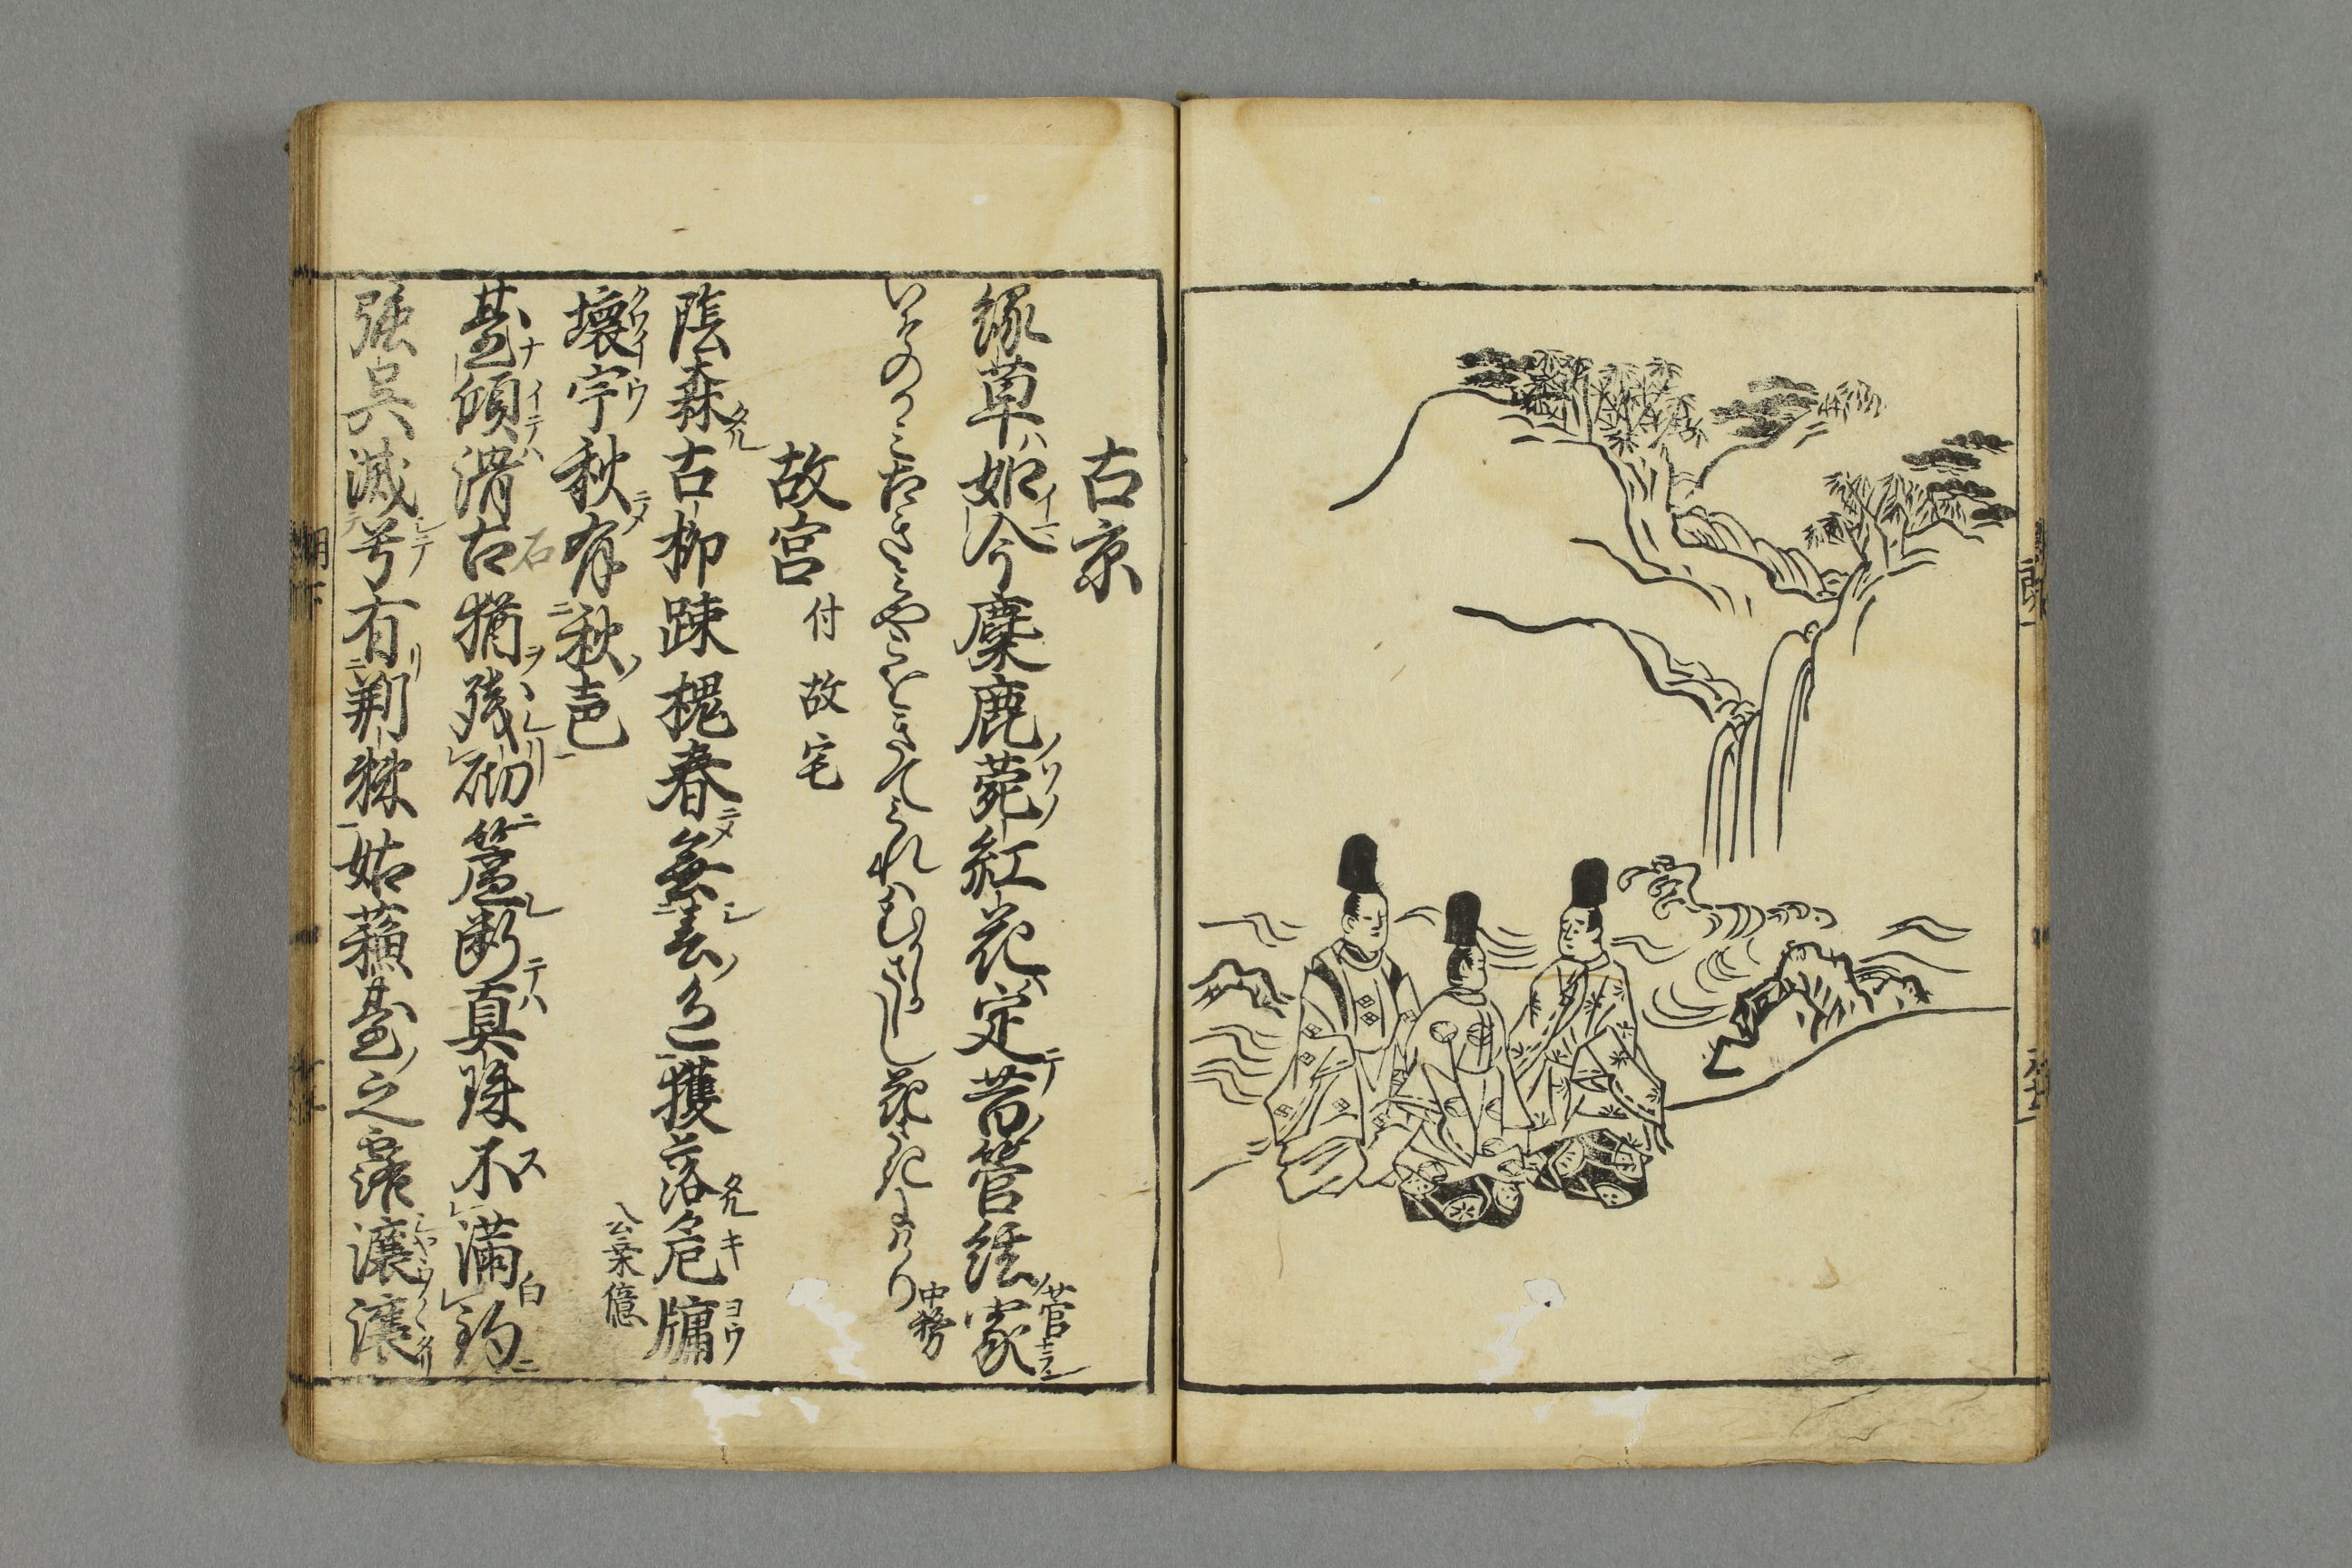 古京
緑草如今麋鹿菀紅花定昔管絃家 菅
いそのかみふるきみやこをきてみれはむかしかさしし花さきにけり 中務
故宮 付故宅
陰森古柳疎槐春無春色獲落危牖
壊宇秋有秋声 公乗億
臺傾滑石猶残砌簾断真珠不満鈎
強呉滅兮有荊棘姑蘇臺之露瀼瀼